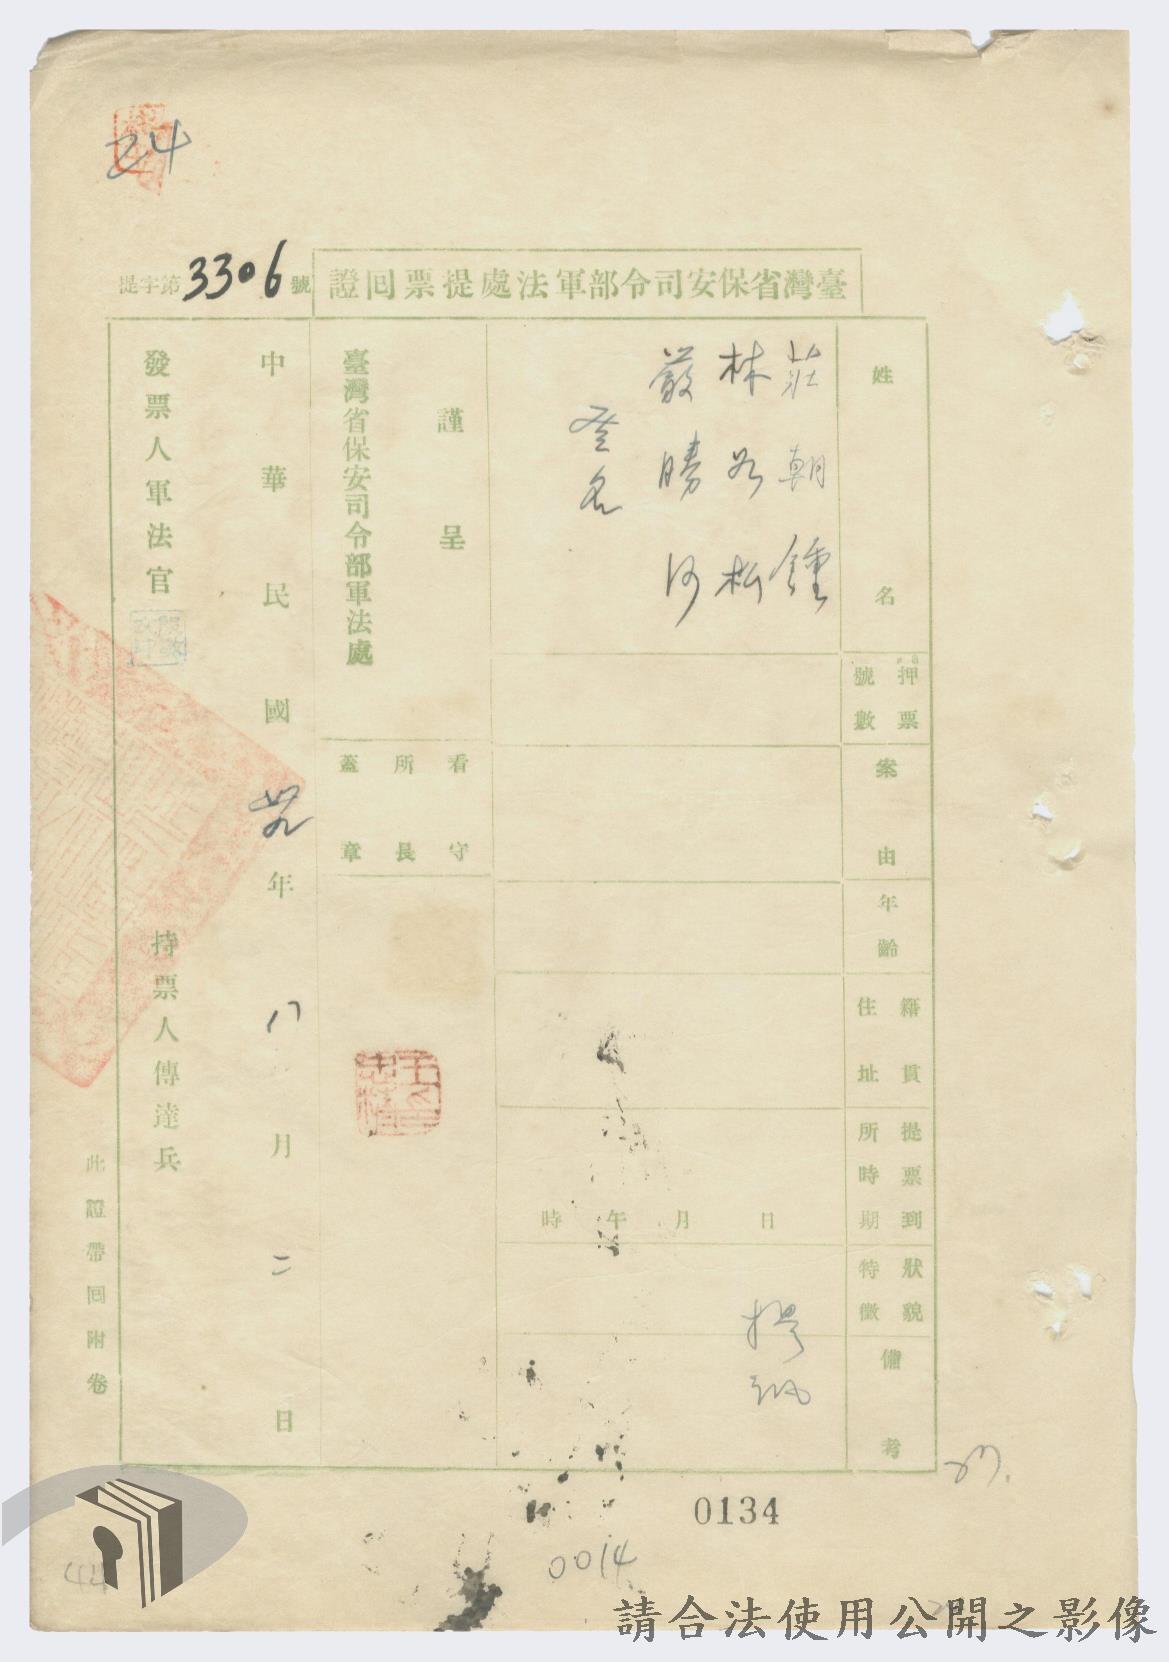 24
臺灣省保安司令部軍法處提票回證
提字第3306號
姓名
押票號數
案由
年齡
籍貫住址
提票到所時期
狀貌特徵
備考
莊朝鍾
林
嚴勝
日月午時
謹呈
臺灣省保安司令部軍法處
看守所長蓋章
中華民國卅九年八月二日
發票人軍法官
持票人傳達兵
此證帶回附卷
0134
0014
44
請合法使用公開之影像